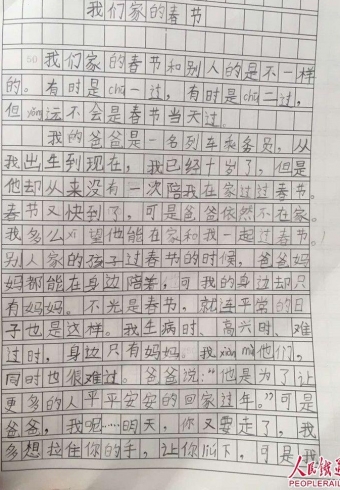 我们家的春节
我们家的春节和别人的是不一样
的。有时是chū一过，有时是chū二过，
但yǒng远不会是春节当天过。
我的爸爸是一名列车乘务员，从
我出生到现在，我已经十岁了，但是
他却从来没有一次陪我在家过过春节。
春节又快到了，可是爸爸依然不在家。
我多么xī望他能在家和我一起过春节。
别人家的孩子过春节的时候，爸爸妈
妈都能在身边陪着，可我的身边却只
有妈妈。不光是春节，就连平常的日
子也是这样。我生病时、高兴时、难
过时，身边只有妈妈。我xiàn mù他们，
同时也很难过。爸爸说：“他是为了让
更多的人平平安安的回家过年。”可是
爸爸，我呢……明天，你又要走了，我
多想拉住你的手，让你liú下，可是我
人民铁道网
PEOPLERAIL